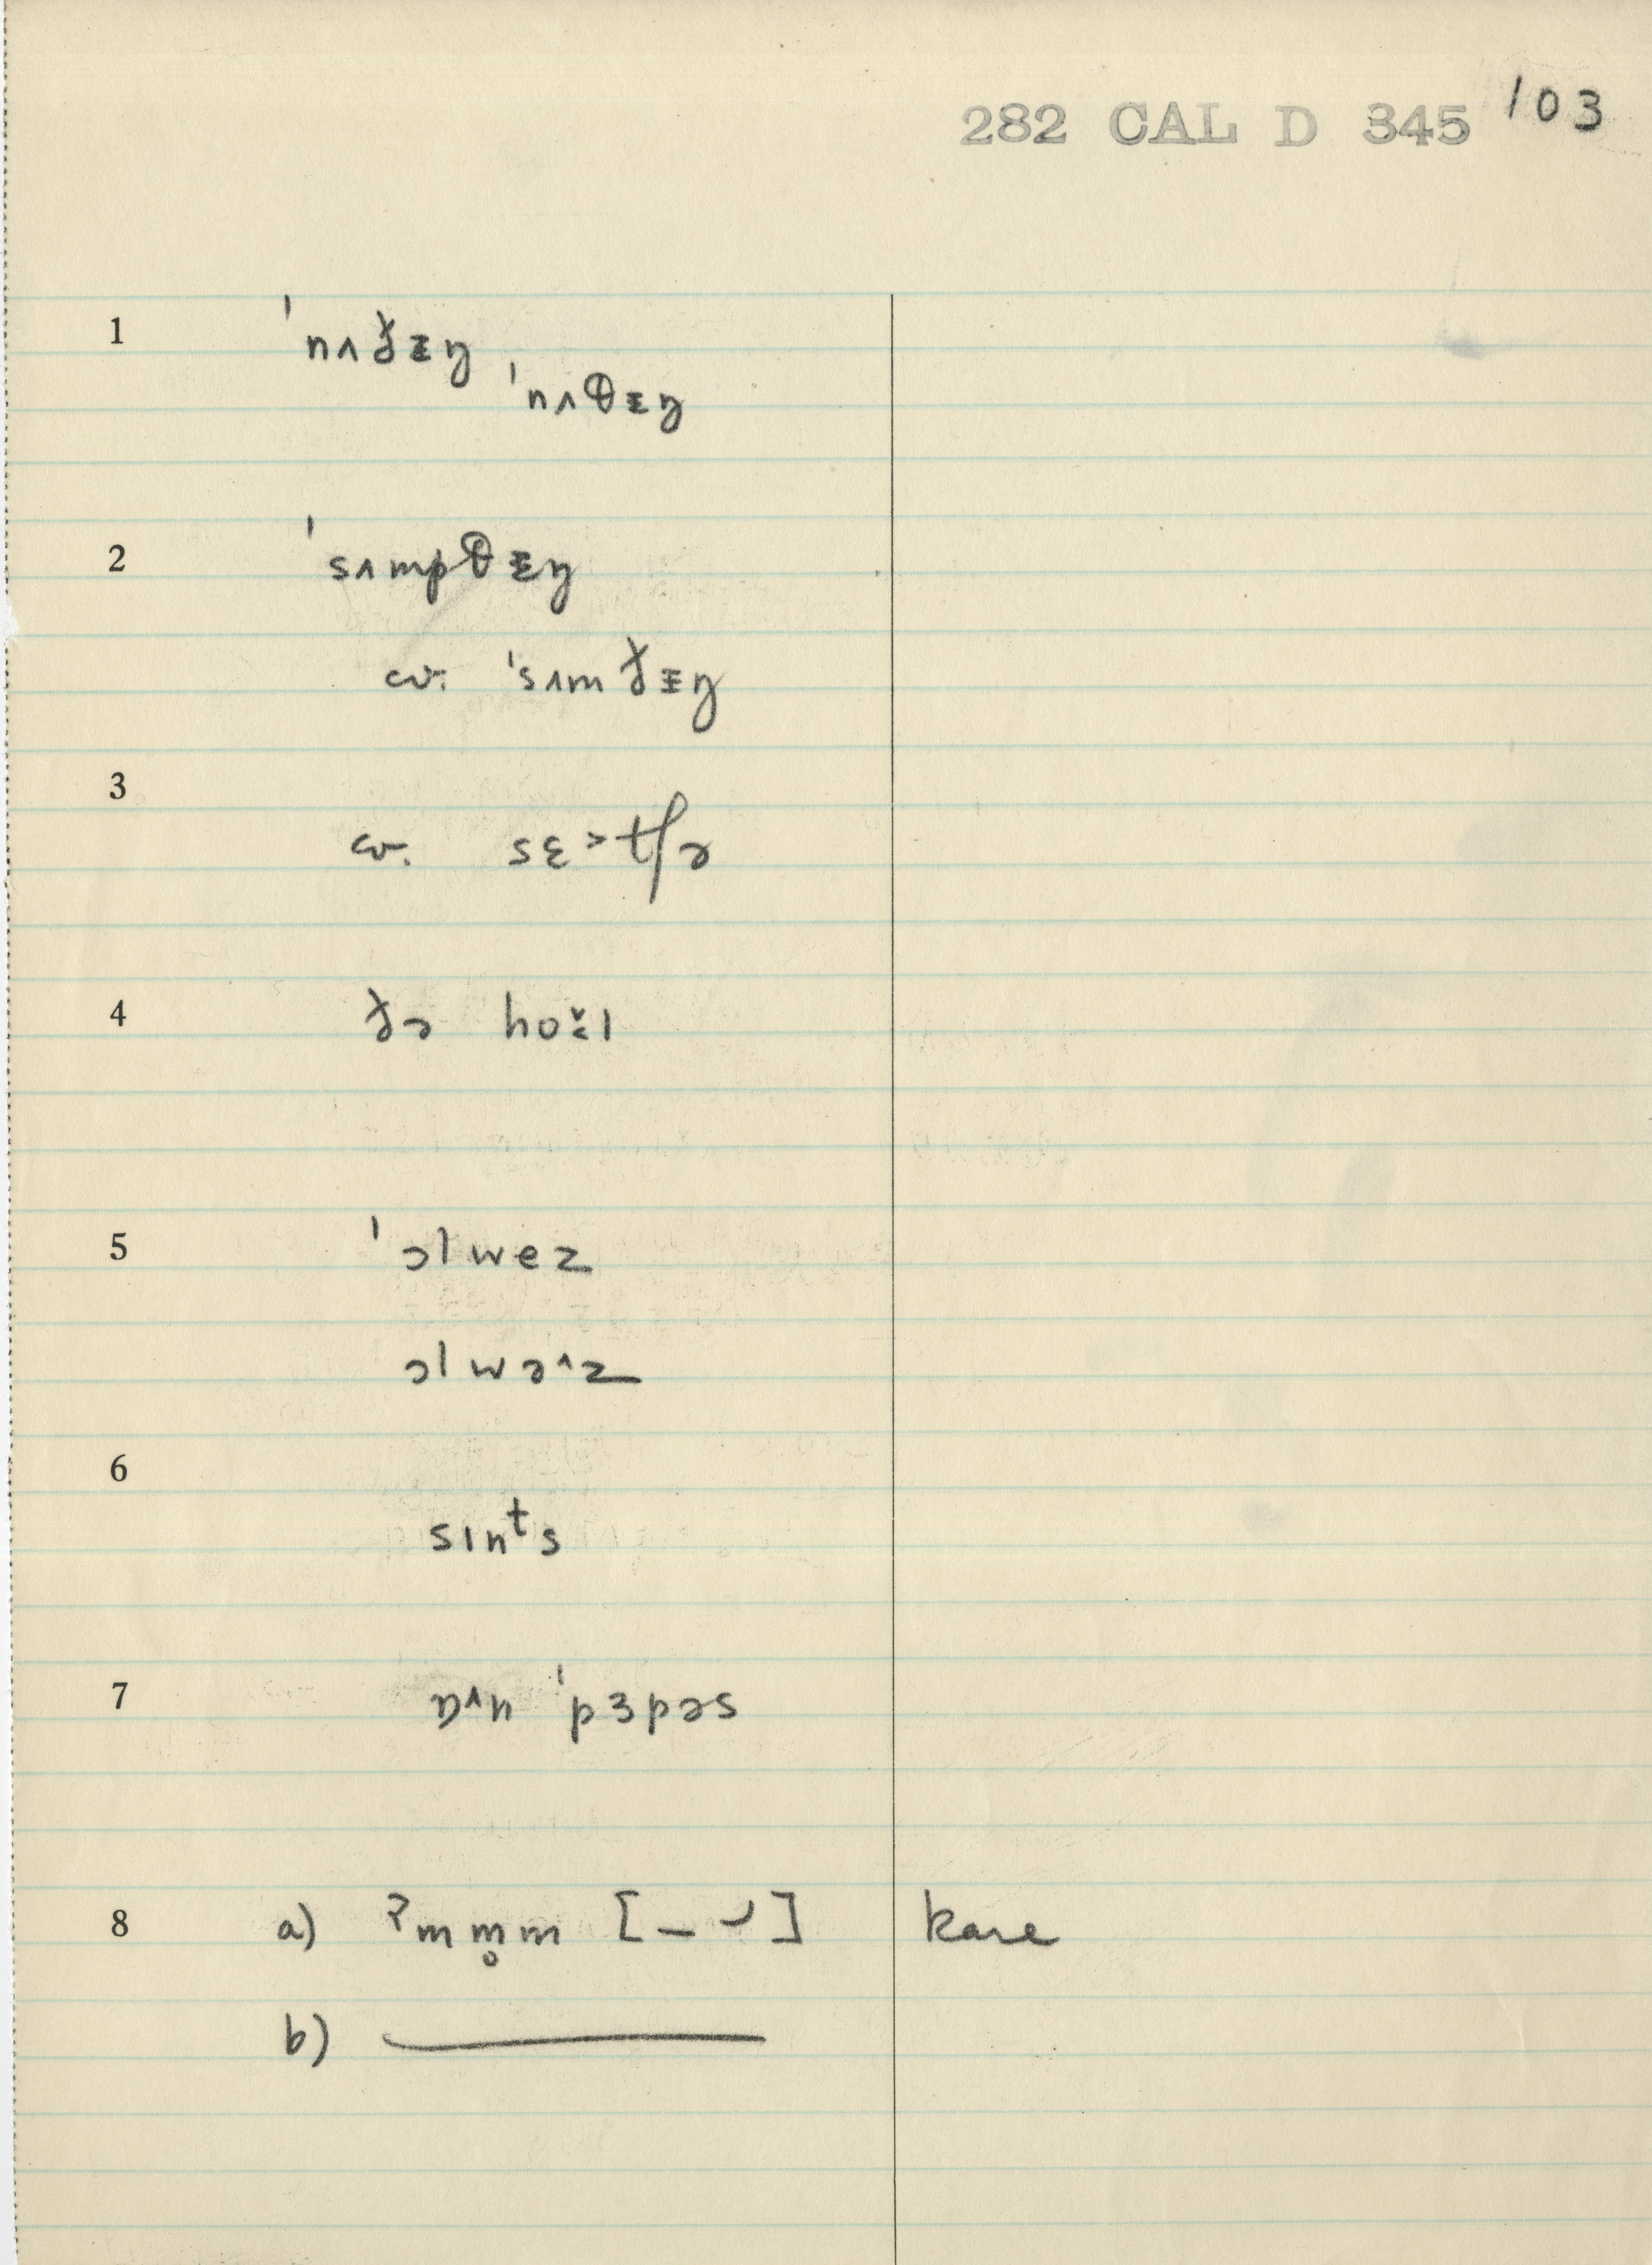 282 CAL D 345 103
1 ˈnʌt̪ᵻŋ
ˈnʌθᵻŋ
2 ˈsʌmpθᵻŋ
cv. ˈsʌmt̪ᵻŋ
3 cv. sɛ˃tʃə
4 t̪ə hoɪ̆l
5 ˈɔlwez
ɔlwə˄z
6 sɪnᵗs
7 ɒ˄n ˈpɜpəs
8 a) ʔmm̥m [– ⌣] kare
b) ———